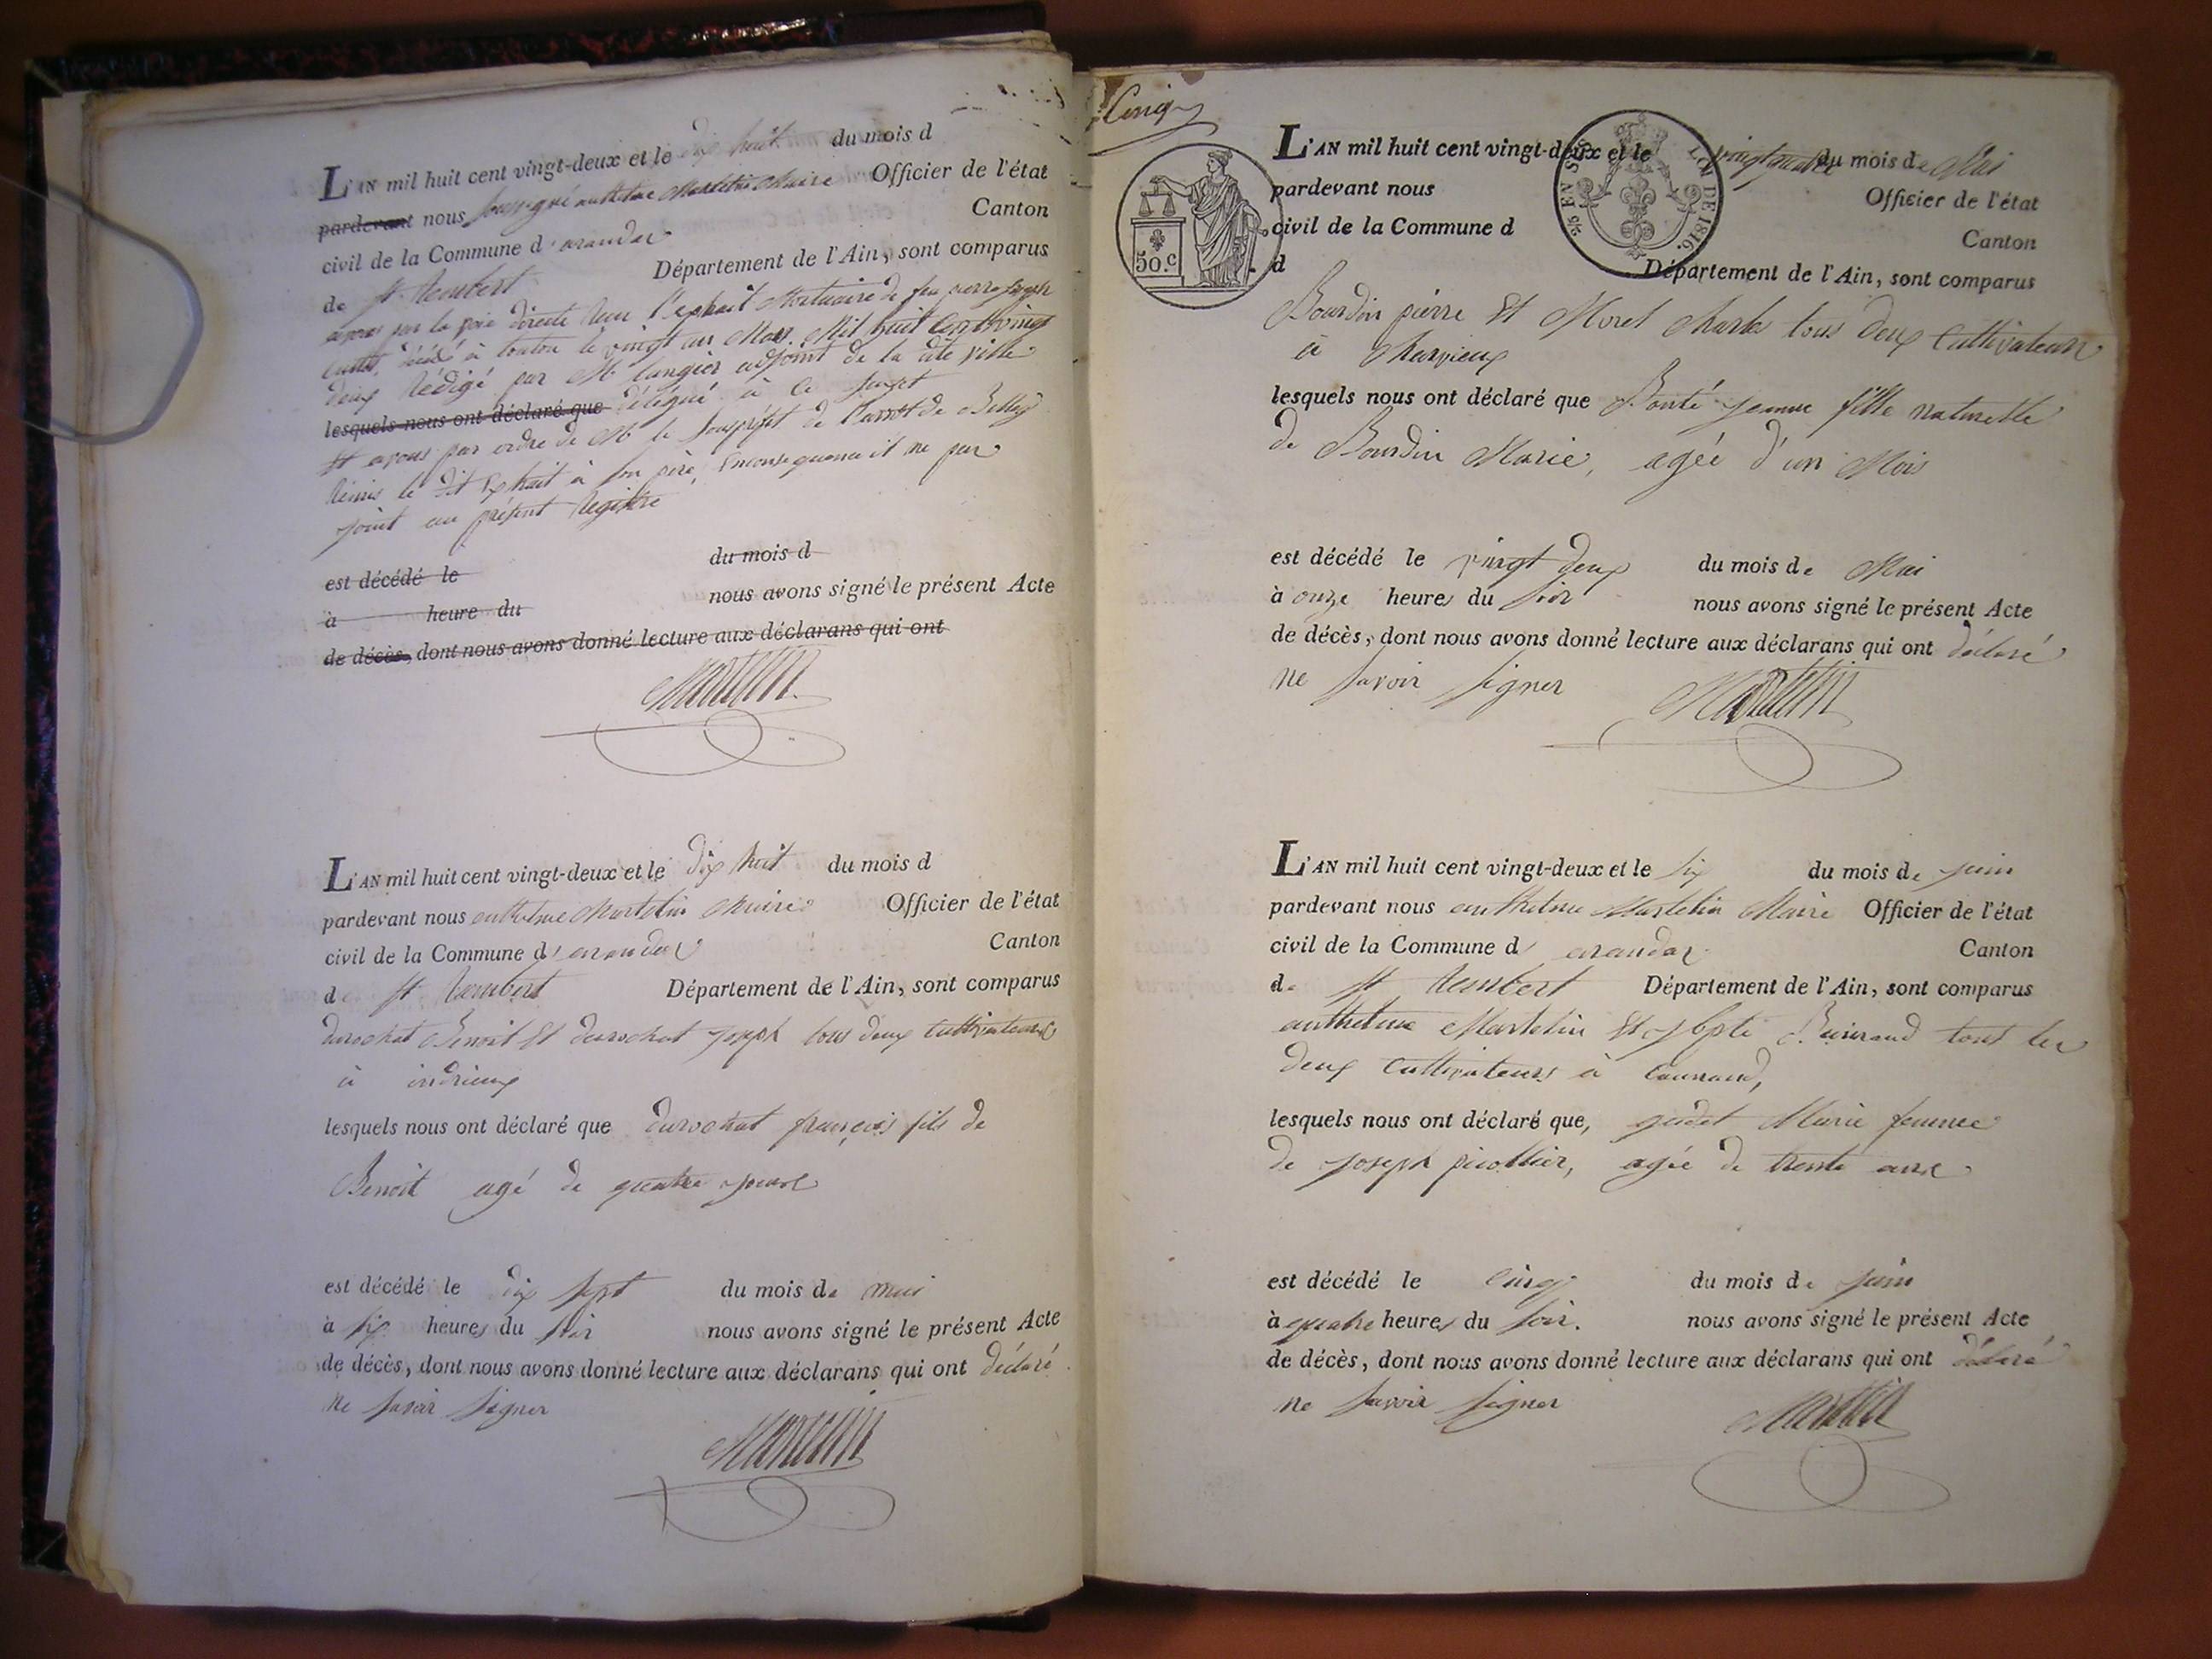 L'AN mil huit cent vingt-deux et le dix huit du mois d
pardevant nous soussigné anthelme Martelin Maire Officier de l'état
civil de la Commune d'arandas Canton
de St Rembert Département de l'Ain, sont comparus
avons par la voie directe Reçu l'extrait Mortuaire de feu pierre joseph
décédé à toulon le vingt un Mars Mil huit Cent vingt
deux Rédigé par Mr adjoint de la dite ville
lesquels nous ont déclaré que délégué à Ce sujet
Et avons par ordre de Mr le Souspréfet de l'arrdt de Belley
Remis le dit Extrait à son père, Enconsequence il ne sera
joint au présent Registre
est décédé le du mois d
à heure du nous avons signé le présent Acte
de décès, dont nous avons donné lecture aux déclarans qui ont
Martelin
L'AN mil huit cent vingt-deux et le dix huit du mois d
pardevant nous anthelme Martelin Maire Officier de l'état
civil de la Commune d'arandas Canton
de St Rembert Département de l'Ain, sont comparus
durochat Benoit Et durochat joseph tous deux Cultivateurs
à indrieux
lesquels nous ont déclaré que durochat françois fils de
Benoit agé de quatre jours
est décédé le dix sept du mois de mai
à six heures du soir nous avons signé le présent Acte
de décès, dont nous avons donné lecture aux déclarans qui ont déclaré
ne savoir signer
Martelin
Cinq
50.C
EN SUS
LOI DE 1816.
L'AN mil huit cent vingt-deux et le vingt du mois de Mai
pardevant nous Officier de l'état
civil de la Commune d Canton
d Département de l'Ain, sont comparus
Bourdin pierre Et Morel Charles tous deux Cultivateurs
à Charvieux
lesquels nous ont déclaré que Bonté jeanne fille naturelle
de Bourdin Marie, agée d'un Mois
est décédé le vingt deux du mois de Mai
à onze heures du soir nous avons signé le présent Acte
de décès, dont nous avons donné lecture aux déclarans qui ont déclaré
ne savoir signer
Martelin
L'AN mil huit cent vingt-deux et le six du mois de juin
pardevant nous anthelme Martelin Maire Officier de l'état
civil de la Commune d'arandas Canton
de St Rembert Département de l'Ain, sont comparus
anthelme Martelin Et jbpte tous les
deux Cultivateurs à
lesquels nous ont déclaré que, Marie femme
de joseph picollier, agée de trente ans
est décédé le Cinq du mois de juin
à quatre heures du soir. nous avons signé le présent Acte
de décès, dont nous avons donné lecture aux déclarans qui ont déclaré
ne savoir signer
Martelin